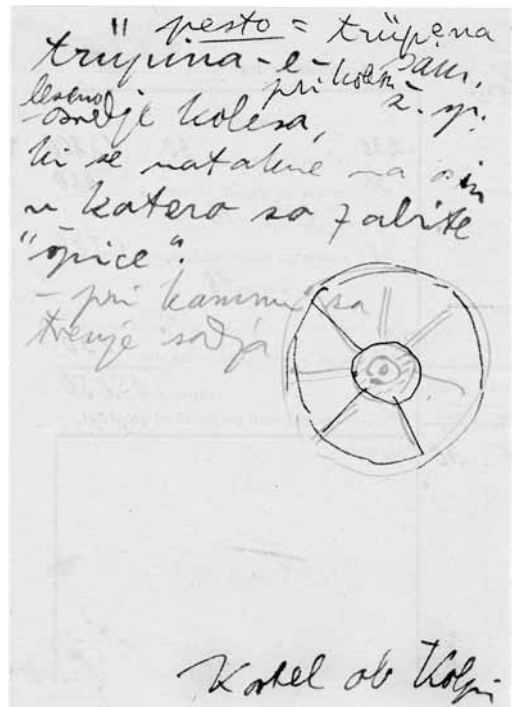 " pesto = trüpena
trüpina -e- sam.
pri kolesu ž. sp.
leseno
osredje kolesa,
ki se natakne na os in
v katero so zabite
"špice".
- pri kamnu za
trenje sadja
Kostel ob Kolpi